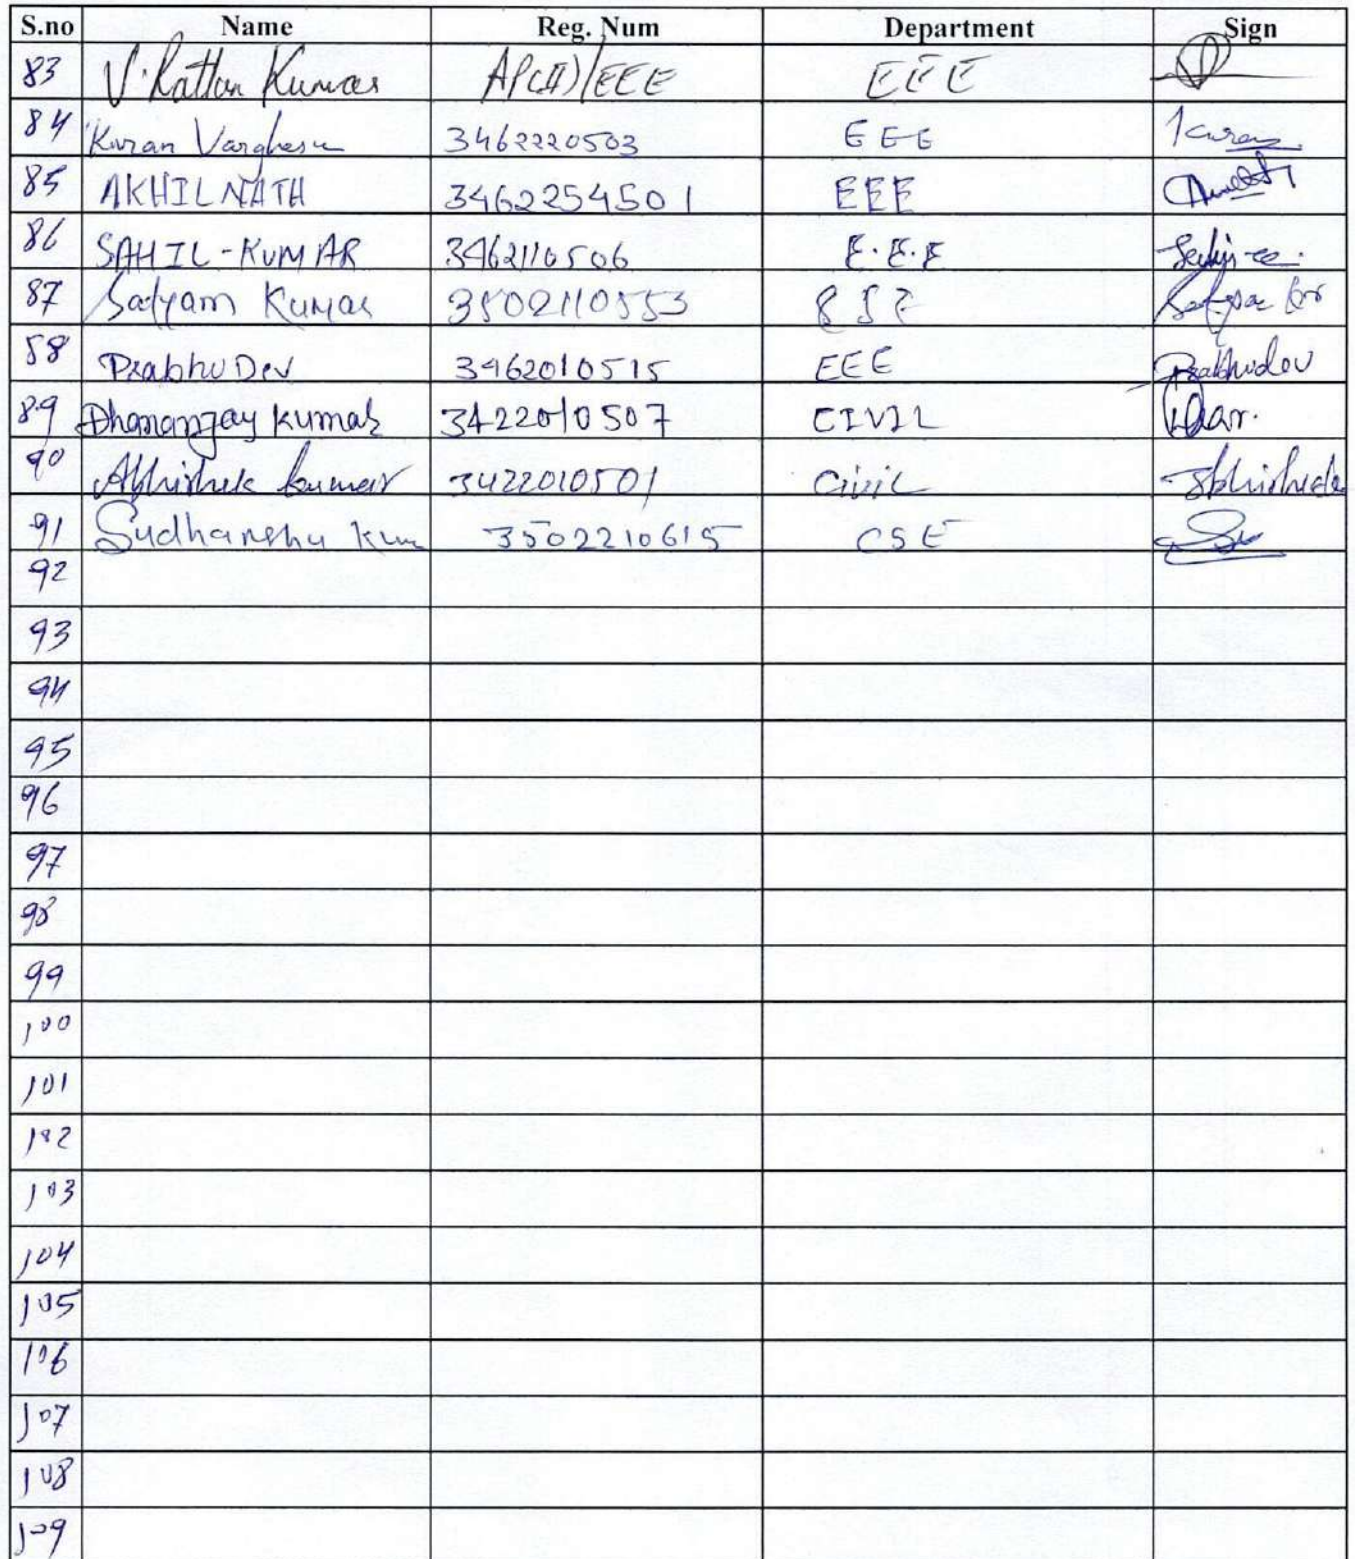 S.no Name Reg. Num Department Sign
83 V. Rattan Kumar AP(II)/EEE EEE
84 Kiran Varghese 3462220503 EEE Kiran
85 AKHILNATH 3462254501 EEE
86 SAHIL-KUMAR 3462110506 E.E.E
87 Satyam Kumar 3502110553
88 Prabhu Dev 3462010515 EEE Prabhudev
89 Dhananjay Kumar 3422010507 CIVIL
90 Abhishek kumar 3422010501 Civil Abhishek
91 Sudhanshu Kum 3502210615 CSE
92
93
94
95
96
97
98
99
100
101
102
103
104
105
106
107
108
109